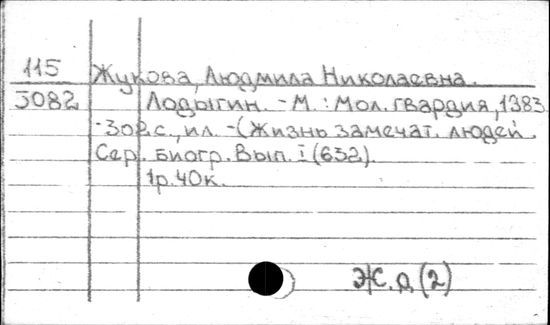 115 Жукова, Людмила Николаевна.
3082 Лодыгин. - М.: Мол. гвардия, 1983
-302с., ил. - (Жизнь замечат. людей.
Сер. биогр. Вып. I (632).
1р. 40к.
Ж. д (2)